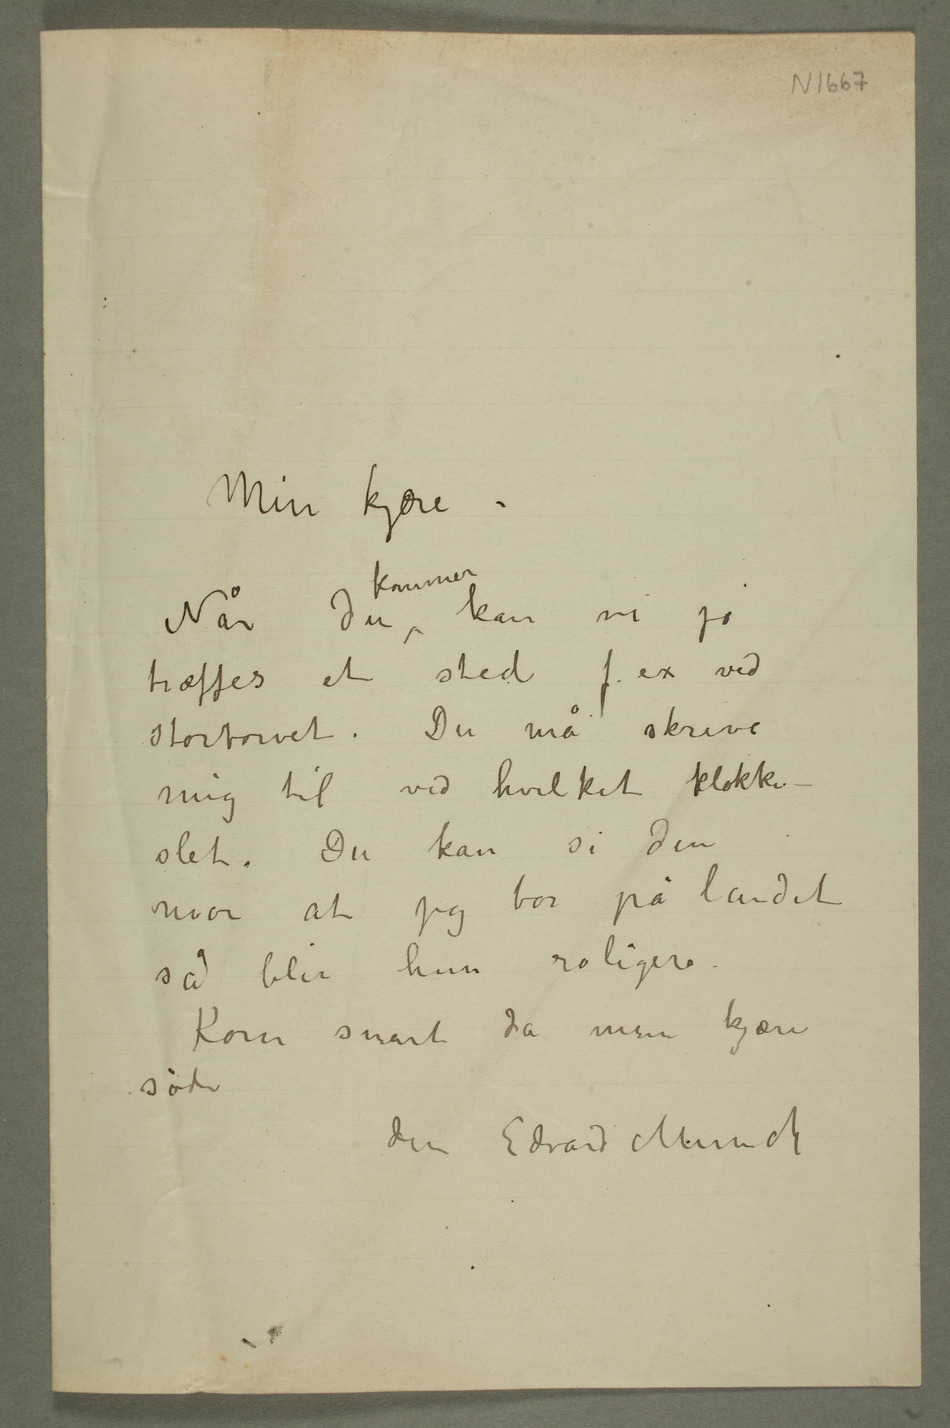 N1667
Min kjære –
Når Du kommer kan vi jo
træffes et sted f. ex ved
Stortorvet. Du må skrive
mig til ved hvilket klokke–
slet. Du kan si din
mor at jeg bor på landet
så blir hun roligere.
Kom snart da min kjære
søde
din Edvard Munch